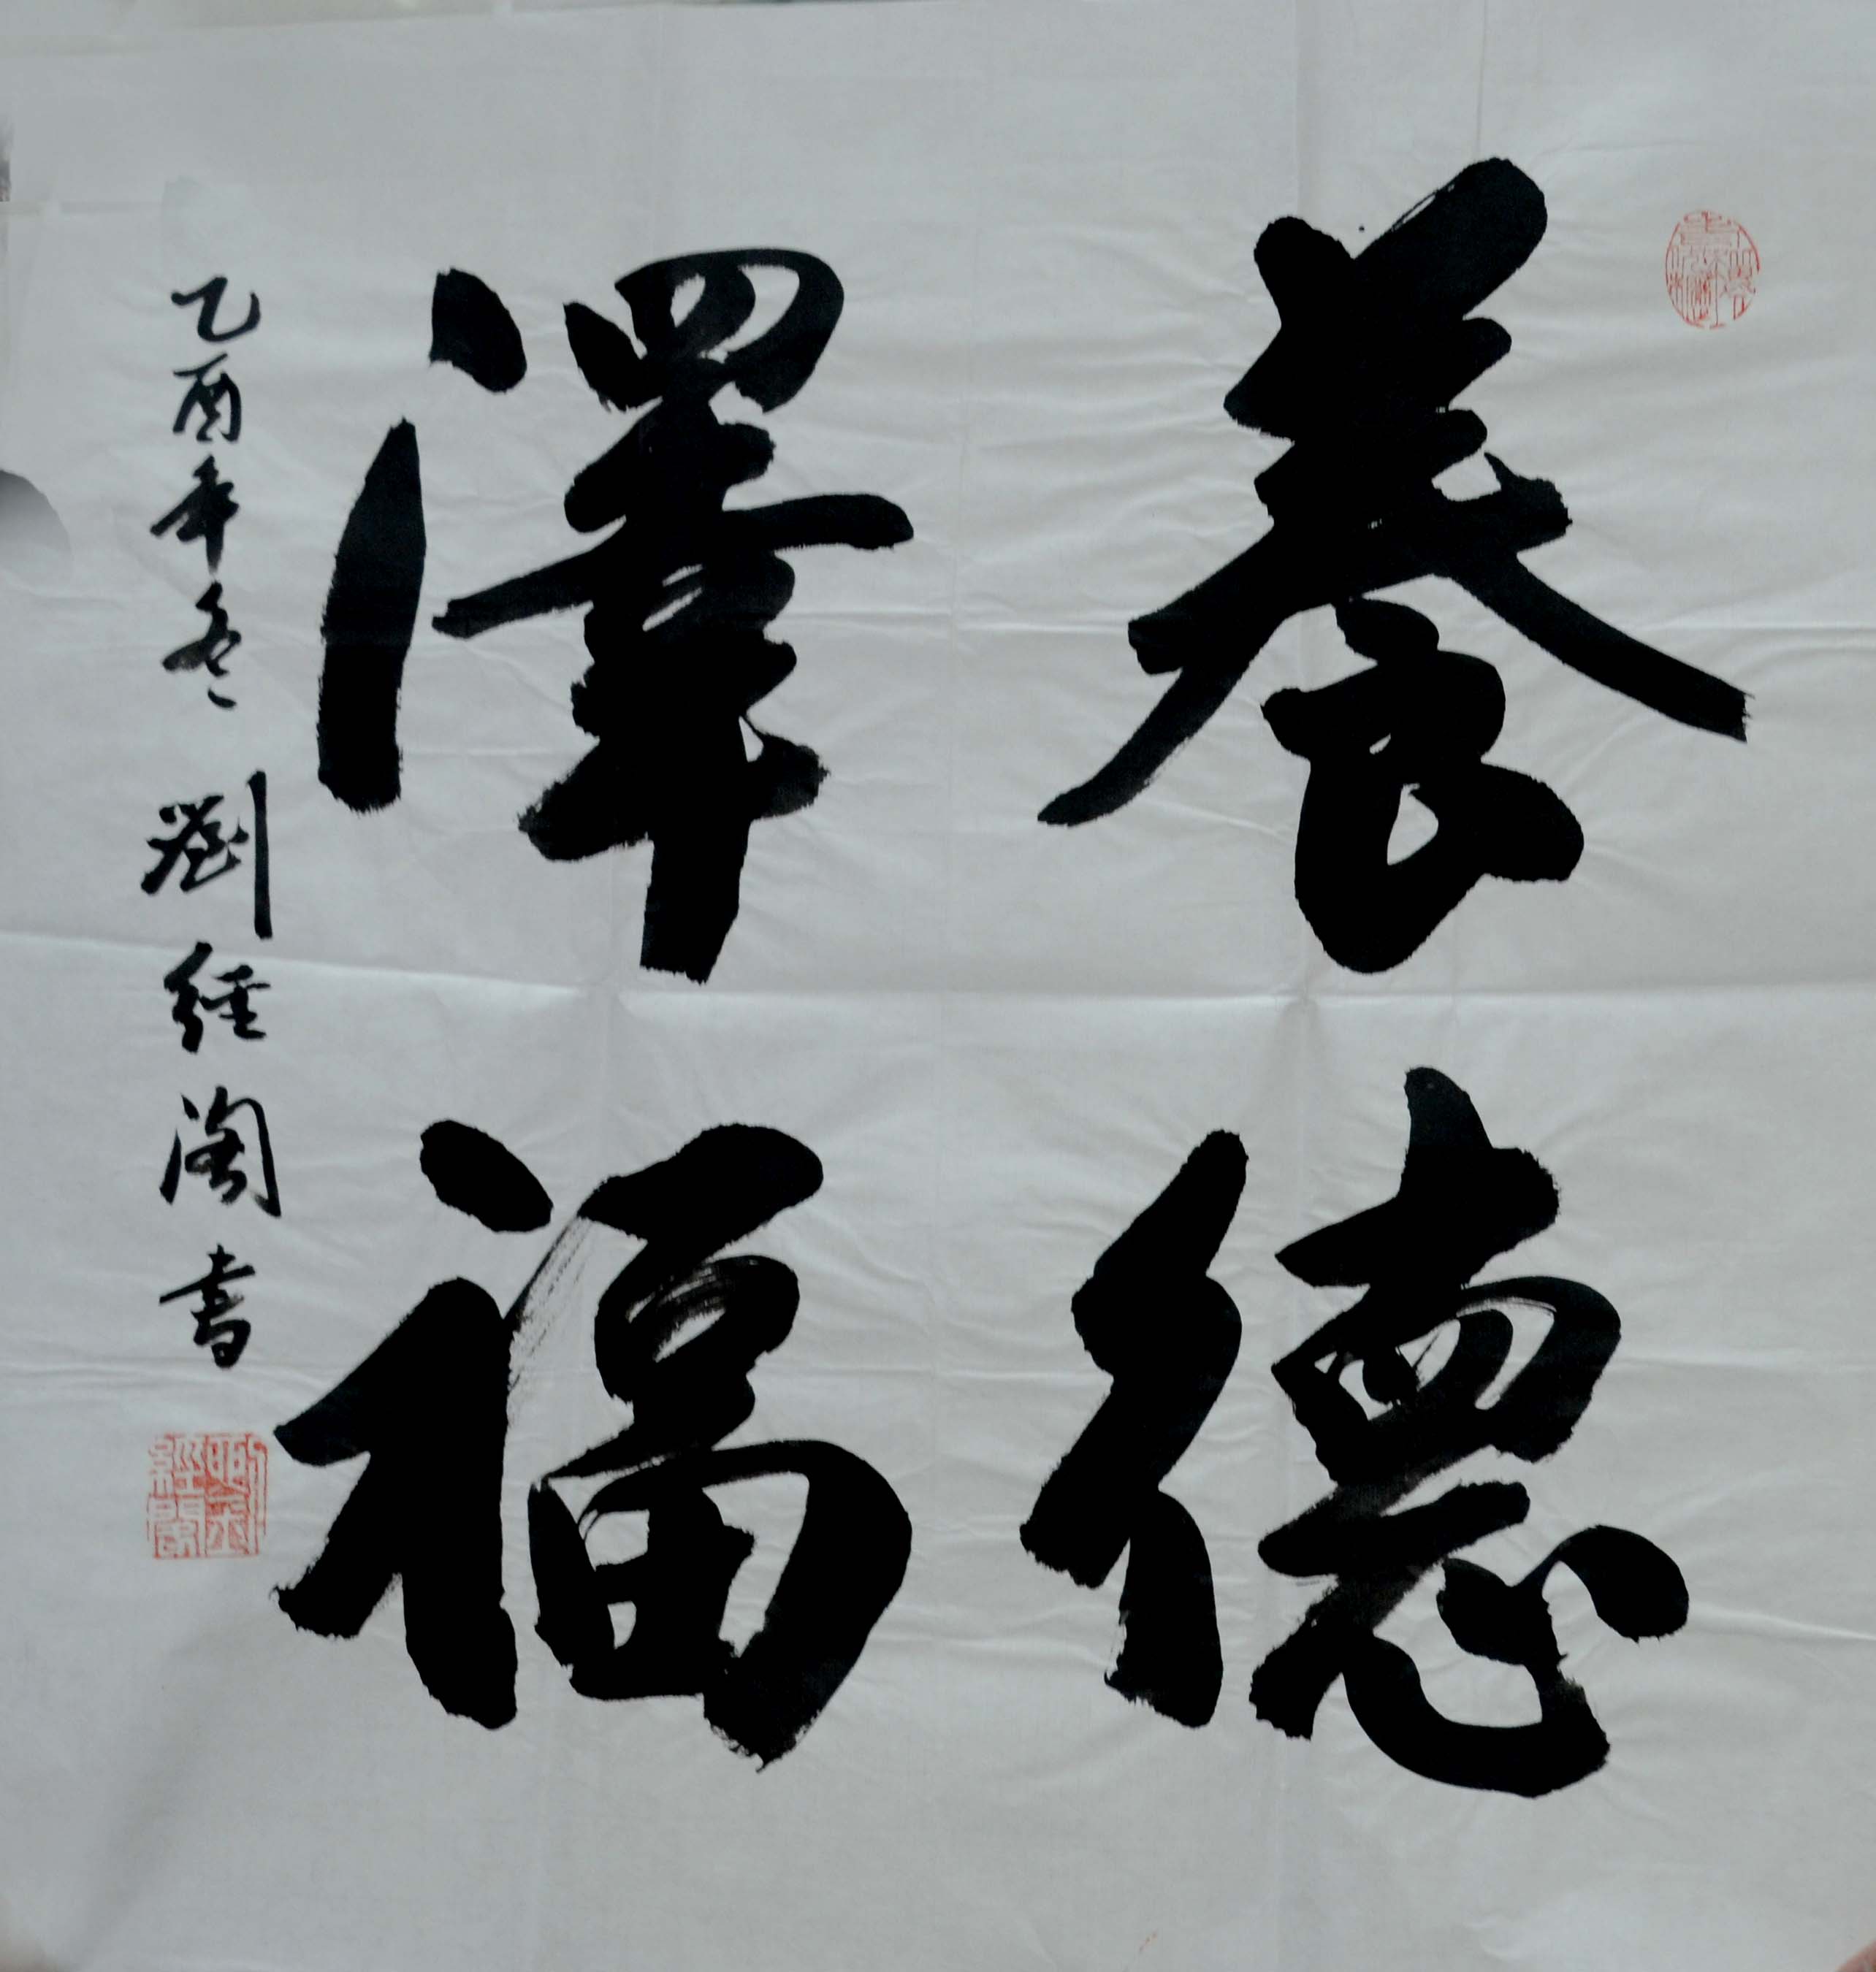 養德
澤福
乙酉年冬 劉經閣書